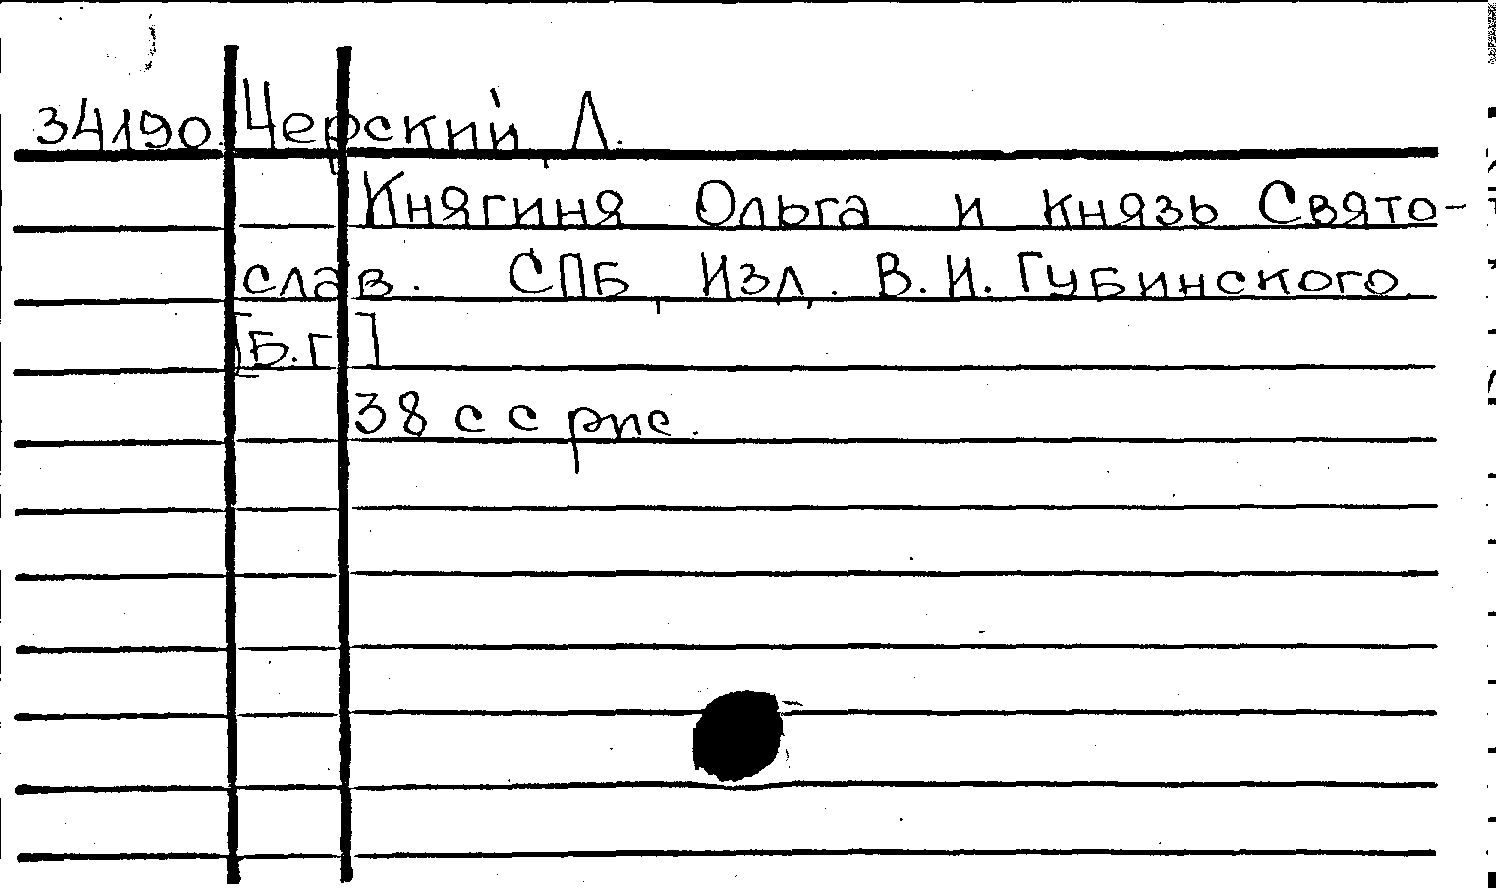 34190 Черский, Л.
Княгиня Ольга и князь Свято-
слав. СПБ, Изд. В.И. Губинского
[Б.г.]
38 с с рис.